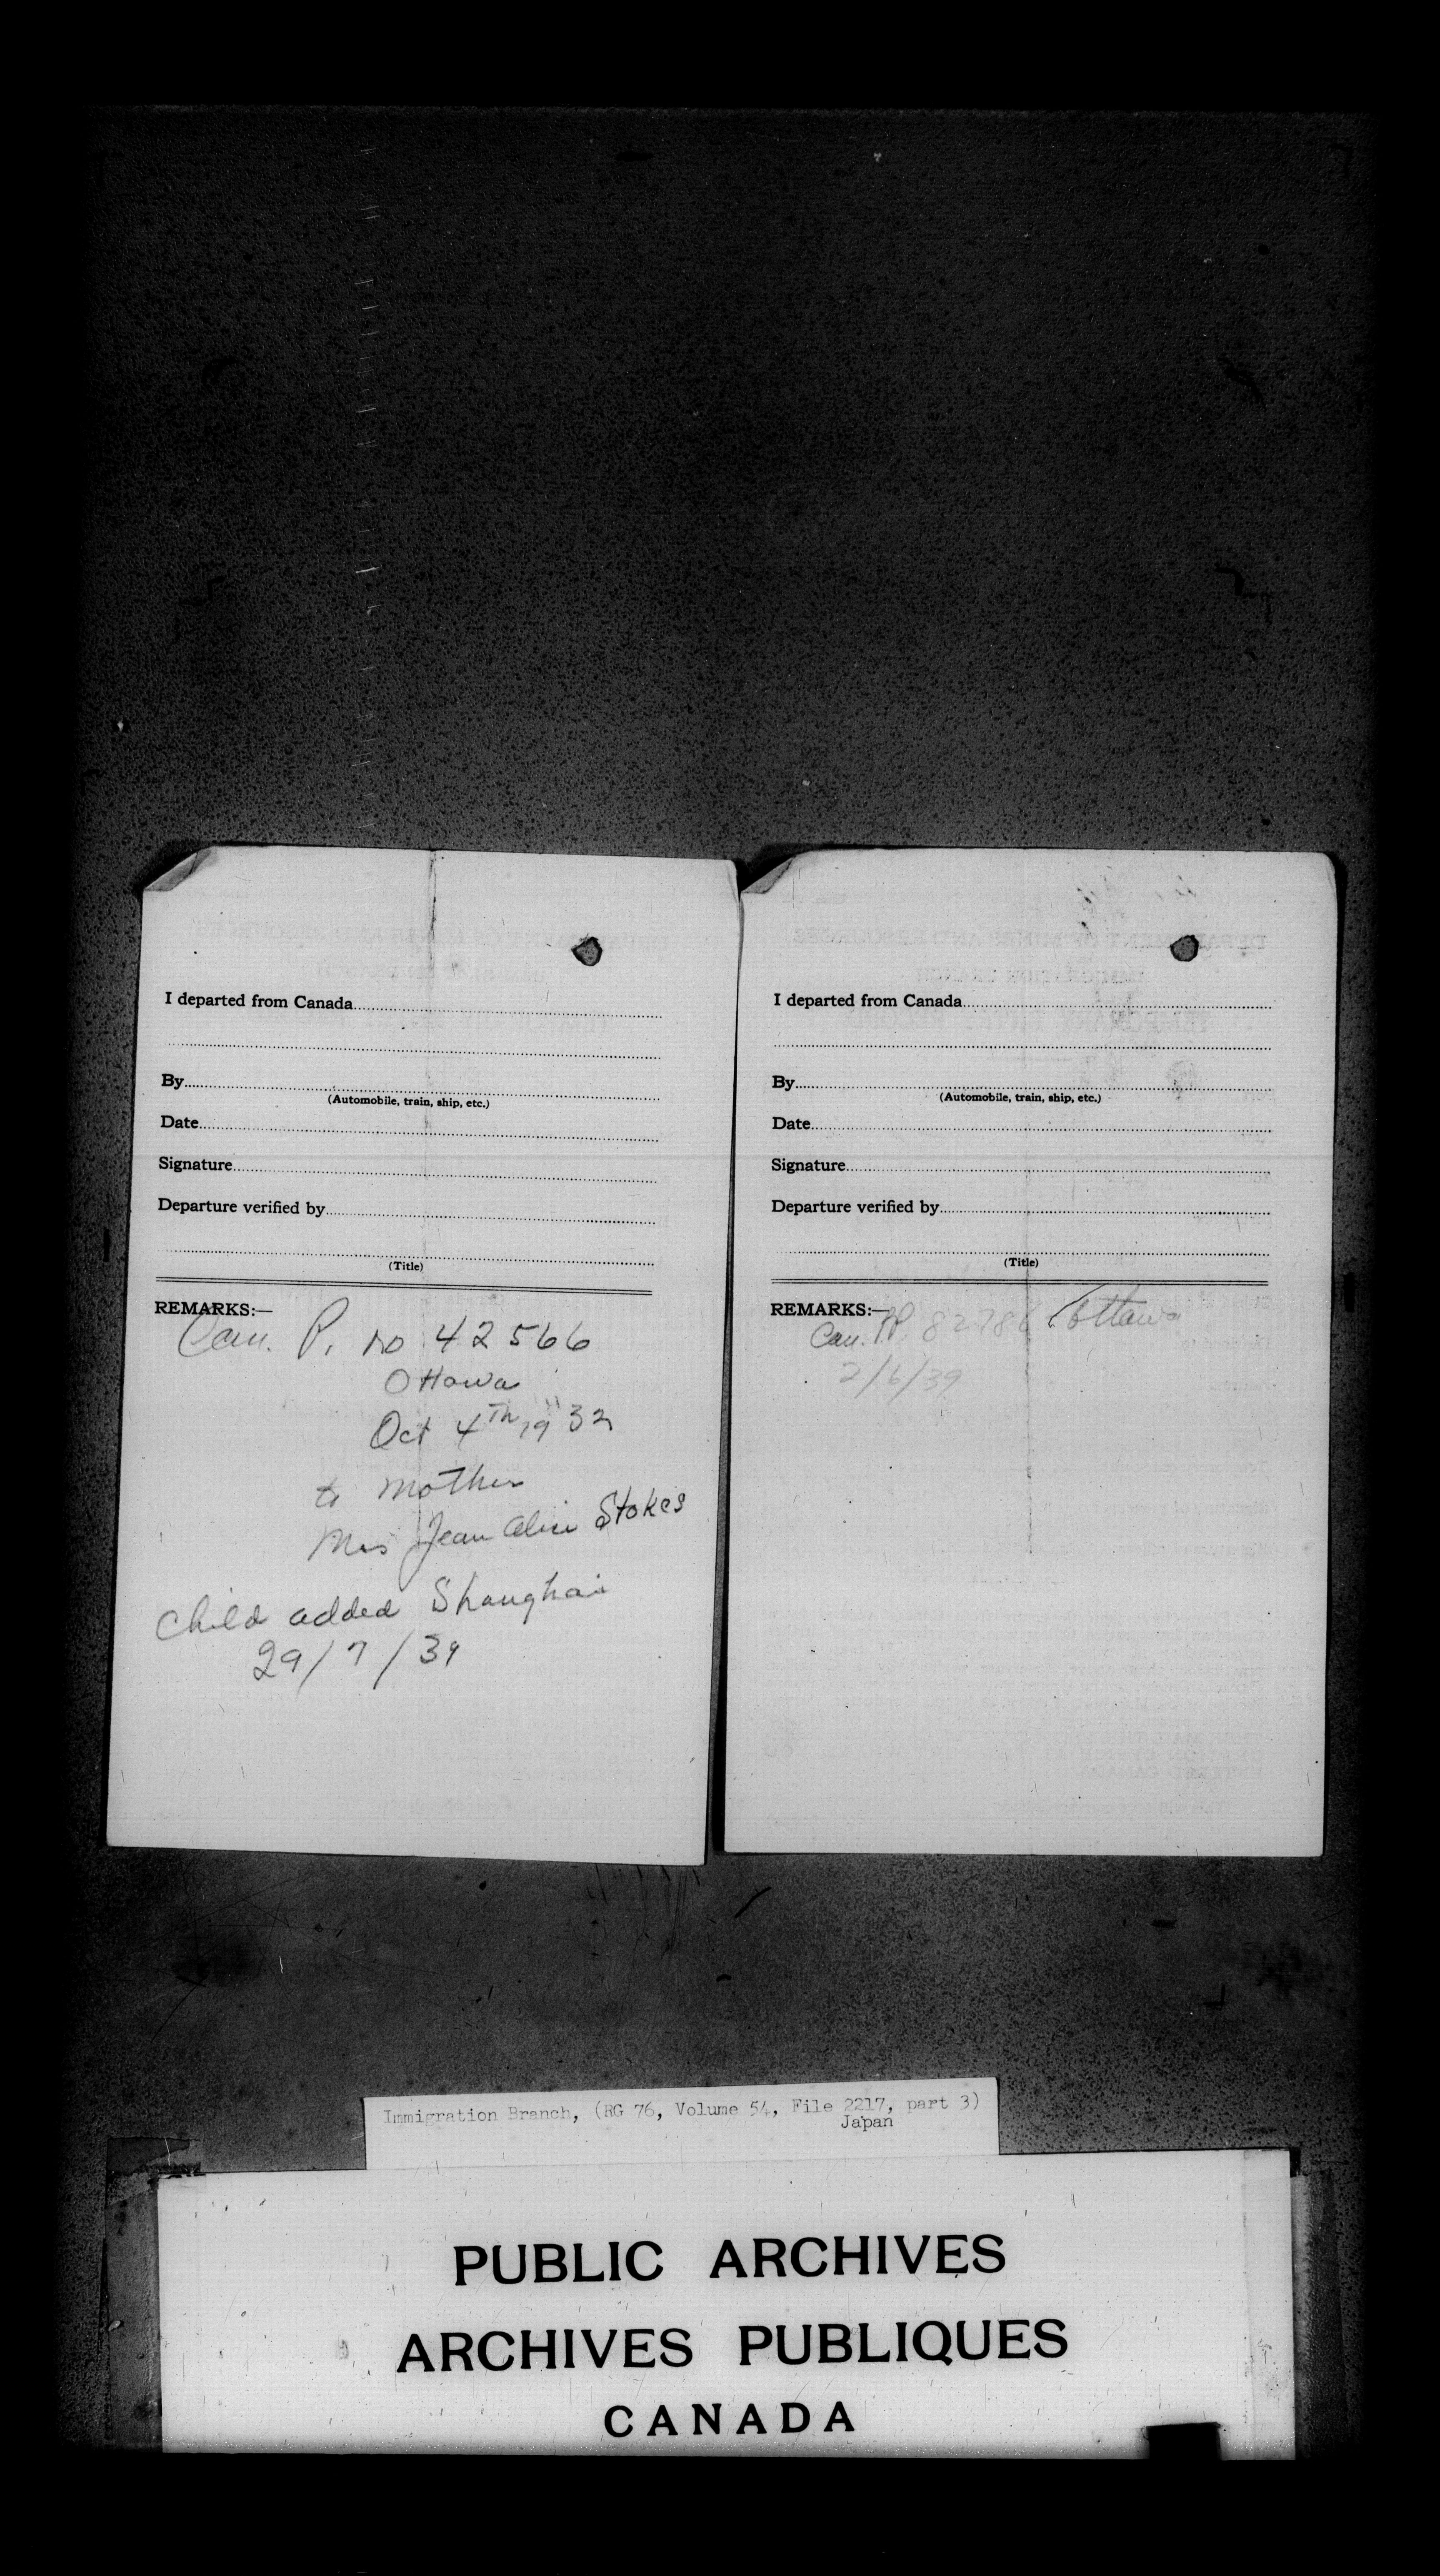 I departed from Canada
By
(Automobile, train, ship, etc.)
Date
Signature
Departure verified by
(Title)
REMARKS:—
Can. P. no 42566
Ottawa
Oct 4th 1932
to mother
Mrs Jean Alice Stokes
Child added Shanghai
29/7/39
I departed from Canada
By
(Automobile, train, ship, etc.)
Date
Signature
Departure verified by
(Title)
REMARKS:—
Can. PP. Ottawa
2/6/39
Immigration Branch, (RG 76, Volume 54, File 2217, part 3)
Japan
PUBLIC ARCHIVES
ARCHIVES PUBLIQUES
CANADA